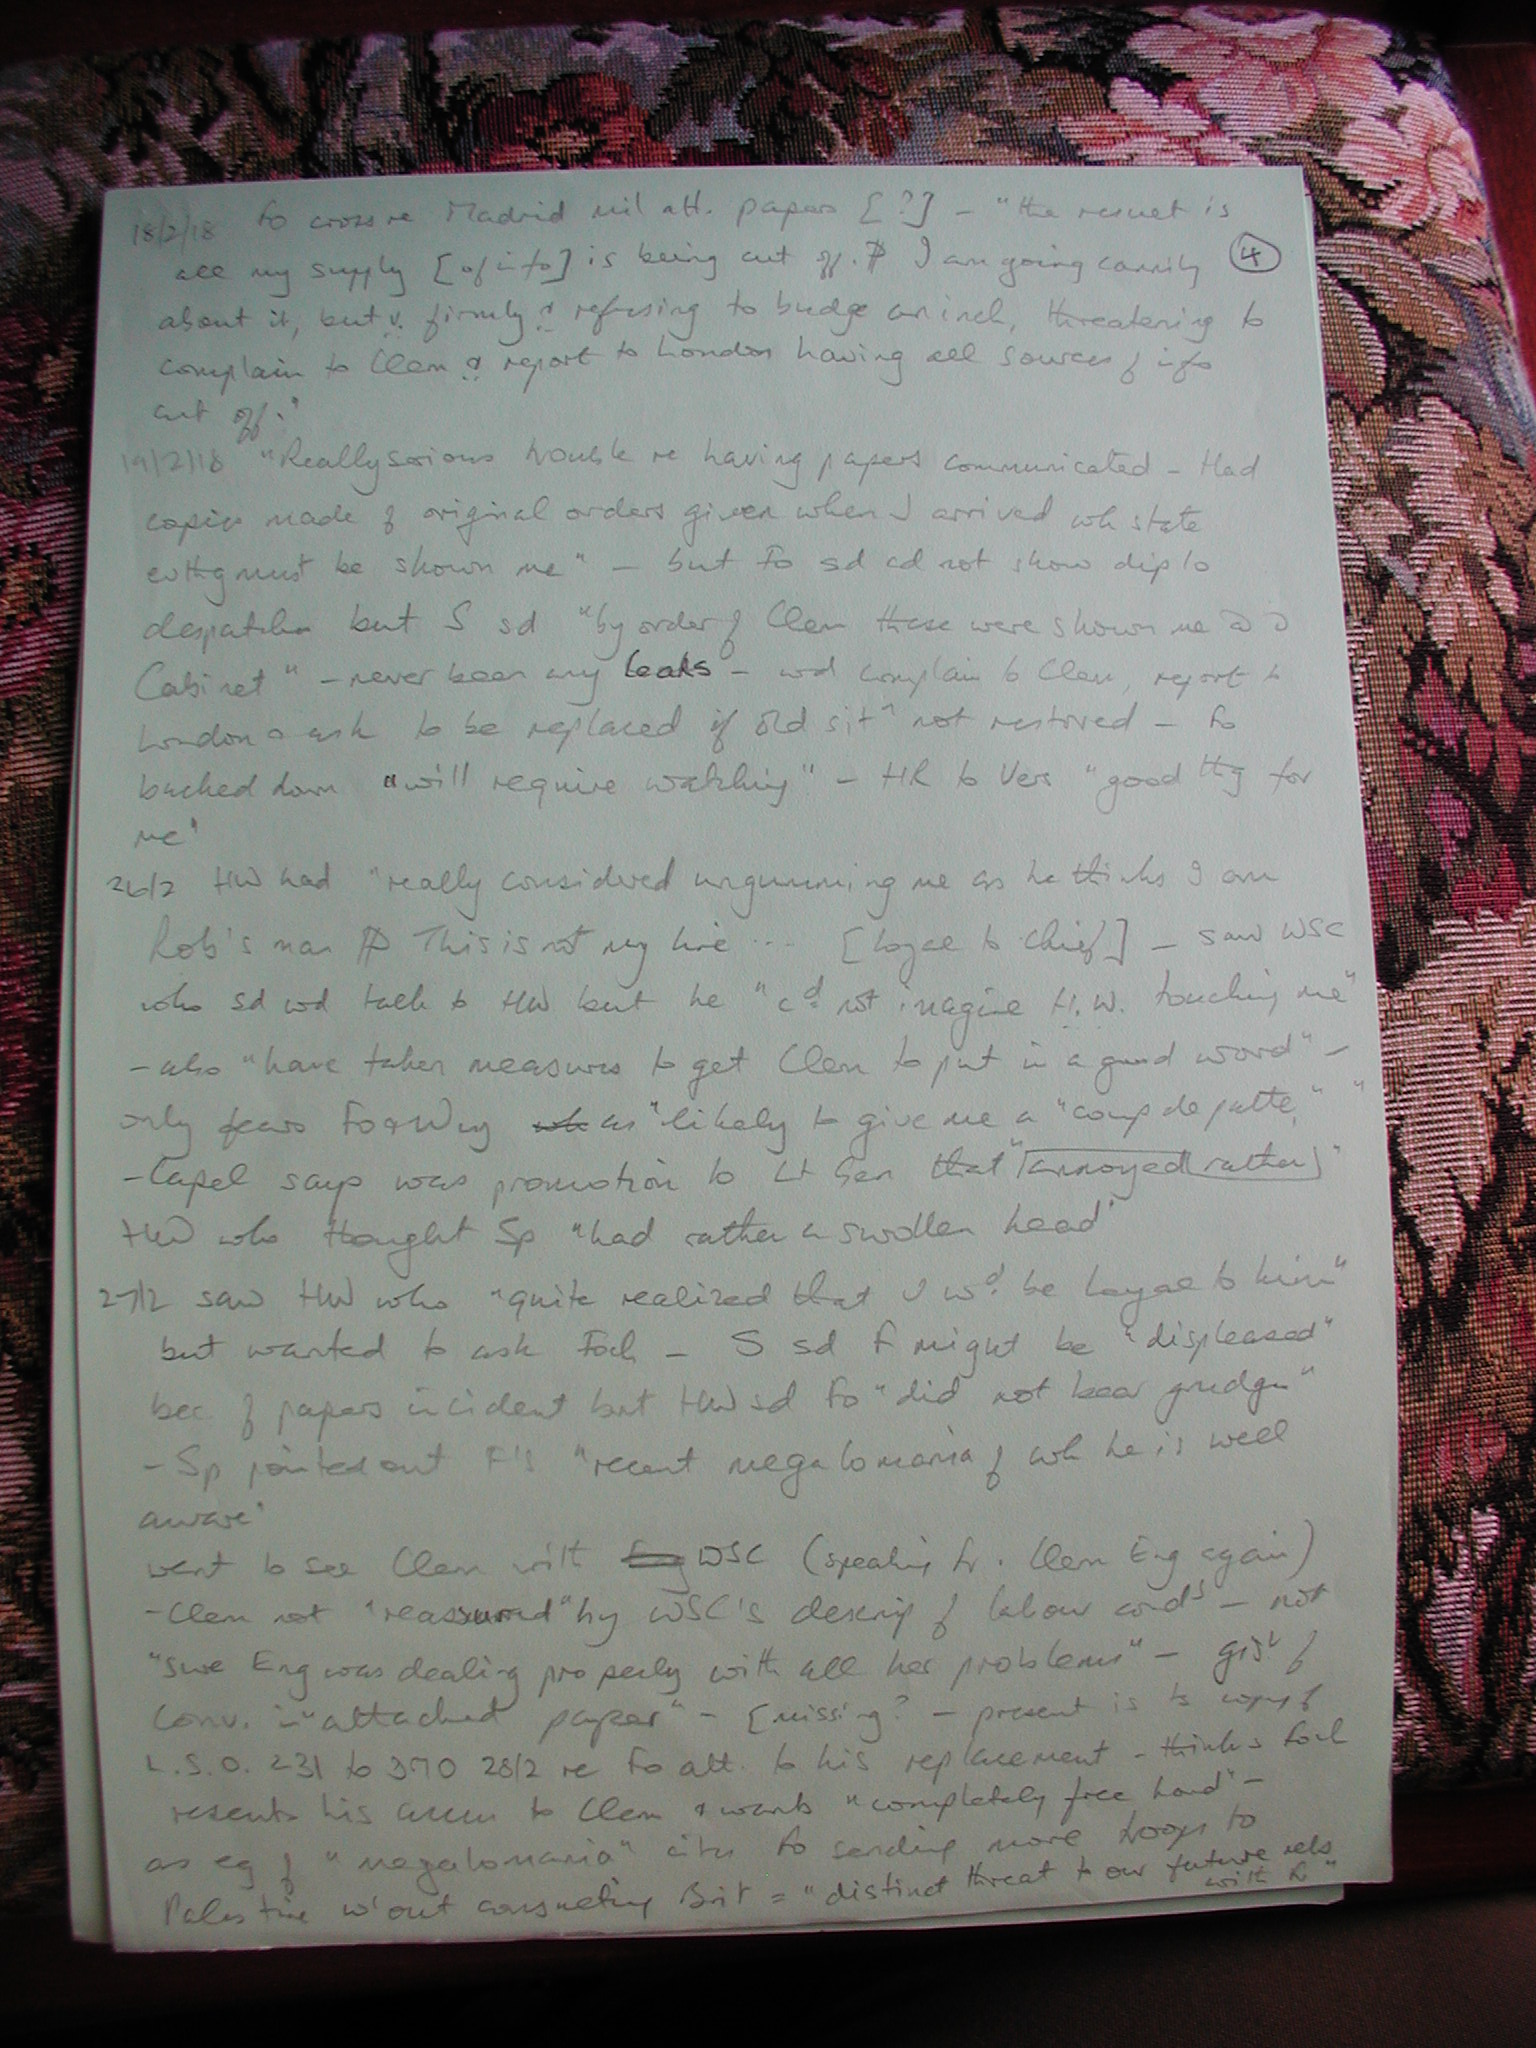 18/2/18 Fo cross re Madrid mil att. papers [?] – "the result is
all my supply [of info] is being cut off. I am going cannily
④
about it, but v. firmly & refusing to budge an inch, threatening to
complain to Clem & report to London having all sources of info
cut off."
19/2/18 "Really serious trouble re having papers communicated – Had
copies made of original orders given when I arrived wh state
evthg must be shown me" – but Fo sd cd not show diplo
despatches but S sd "by order of Clem these were shown me
Cabinet" – never been any leaks – wd complain to Clem, report to
London & ask to be replaced if old sitn not restored – Fo
backed down "will require watching" – HR to Vers "good thg for
me"
26/2 HW had "really considered ungumming me as he thinks I am
Rob's man This is not my line ... [loyal to chief] – saw WSC
who sd wd talk to HW but he "cd not imagine H.W. touching me"
– also "have taken measures to get Clem to put in a good word" –
only fears Fo & Wey as "likely to give me a "coup de patte," "
– Capel says was promotion to Lt Gen that "annoyed rather"
HW who thought Sp "had rather a swollen head"
27/2 saw HW who "quite realized that I wd be loyal to him"
but wanted to ask Foch – S sd F might be "displeased"
bec of papers incident but HW sd Fo "did not bear grudges"
– Sp pointed out F's "recent megalomania of wh he is well
aware"
went to see Clem with WSC (speaking Fr. Clem Eng again)
– Clem not "reassured" by WSC's descrip of labour conds – not
"sure Eng was dealing properly with all her problems" – gist of
conv. in "attached paper" – [missing? – present is to copy of
L.S.O. 231 to 3710 28/2 re Fo att. to his replacement – thinks Foch
resents his access to Clem & wants "completely free hand" –
as eg of "megalomania" cites Fo sending more troops to
Palestine w'out consulting Brit = "distinct threat to our future rels
with Fr"